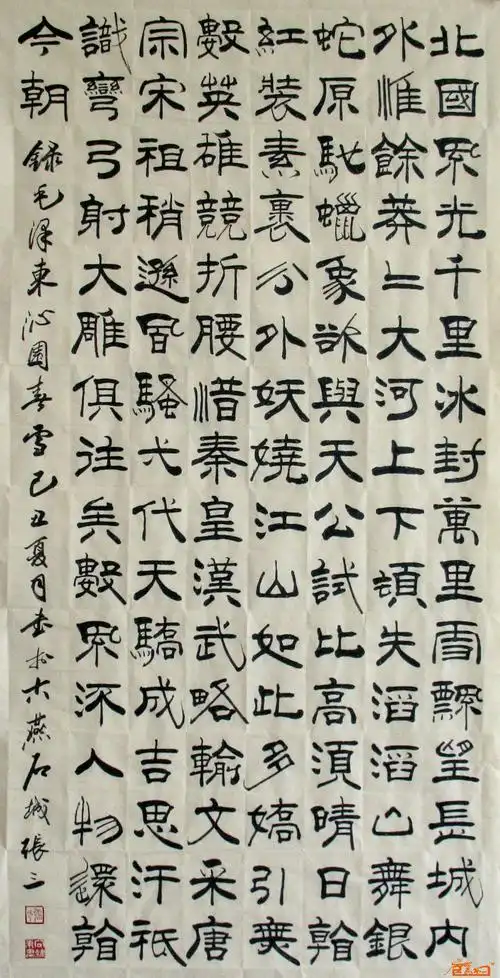 北國風光千里冰封萬里雪飄望長城內
外惟餘莽〻大河上下頓失滔滔山舞銀
蛇原馳蠟象欲與天公試比高須晴日看
紅裝素裹分外妖嬈江山如此多嬌引無
數英雄競折腰惜秦皇漢武略輸文采唐
宗宋祖稍遜風騷弌代天驕成吉思汗祗
識彎弓射大雕俱往矣數風流人物還看
今朝
錄毛澤東沁園春雪己丑夏月書於古燕石城張三